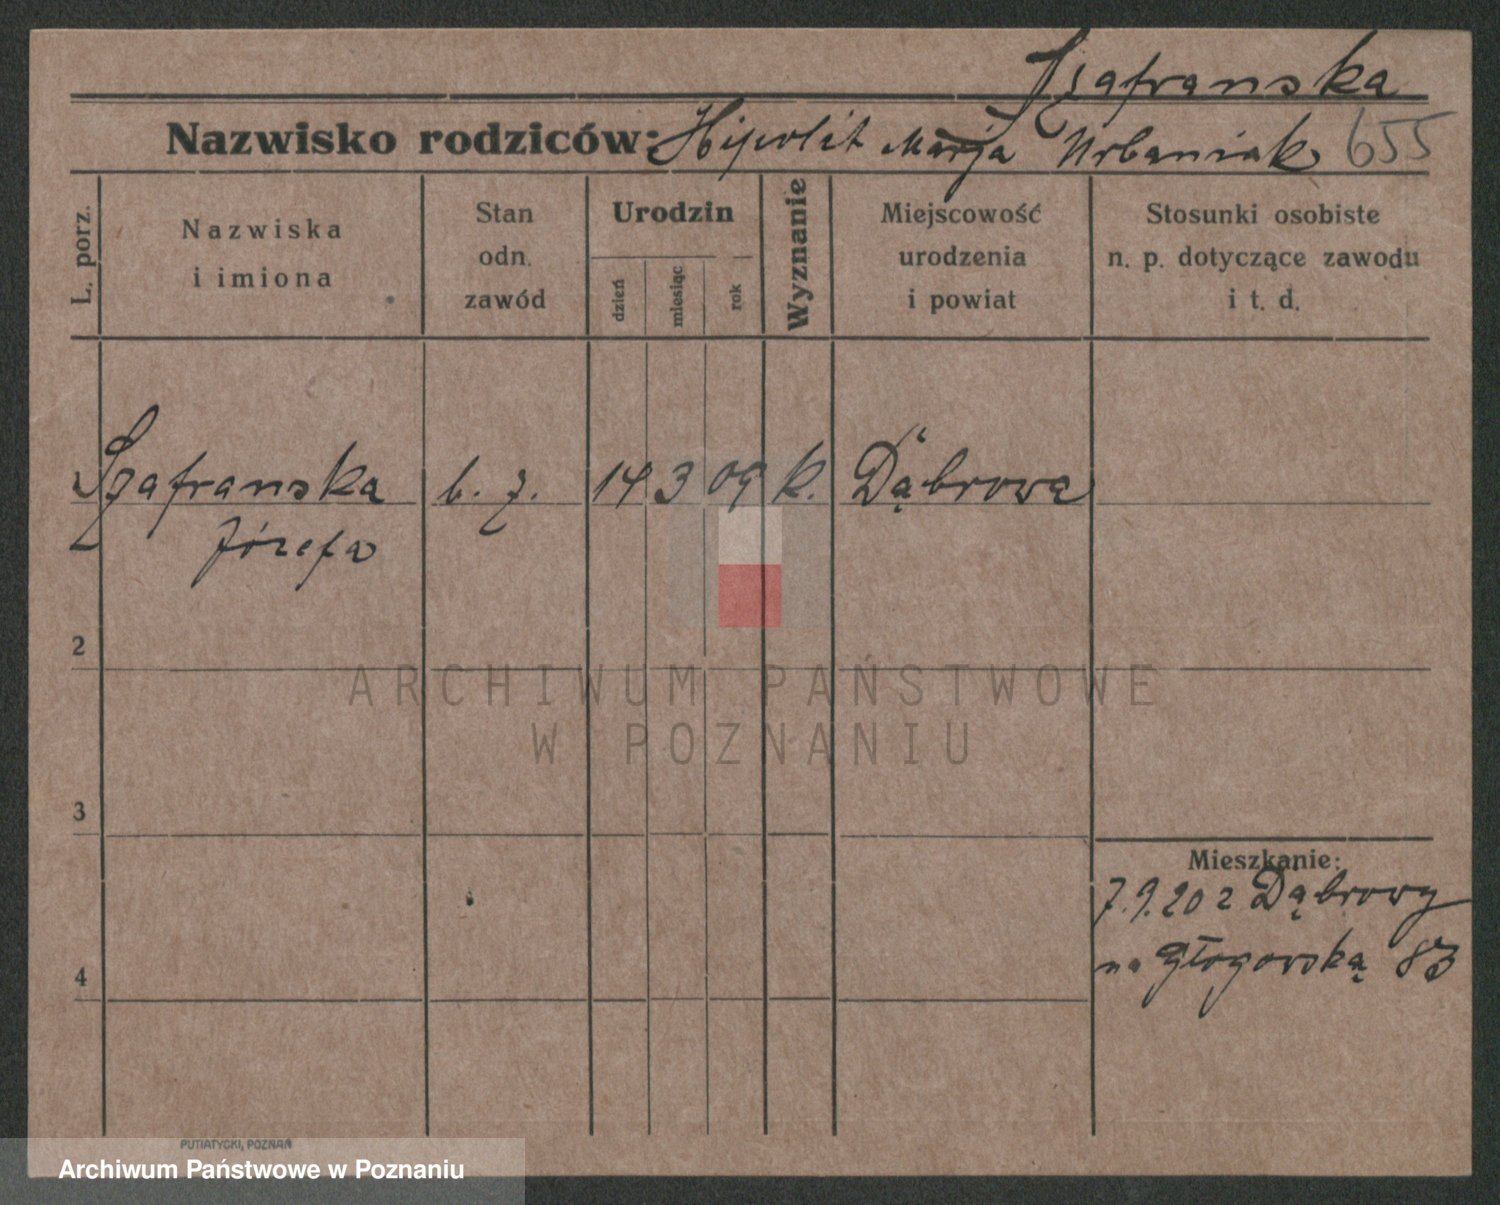 Szafranska
Nazwisko rodziców: Hipolit Marja Urbaniak 655
L. porz.
Nazwiska
i imiona
Stan
odn.
zawód
Urodzin
dzień
miesiąc
rok
Wyznanie
Miejscowość
urodzenia
i powiat
Stosunki osobiste
n. p. dotyczące zawodu
i t. d.
Szafranska b. z. 14 3 09 k. Dąbrowa
Józefa
2
ARCHIWUM PAŃSTWOWE
W POZNANIU
3
Mieszkanie:
7.9.20 z Dąbrowy
na Głogowską 83
4
PUTIATYCKI, POZNAŃ
Archiwum Państwowe w Poznaniu